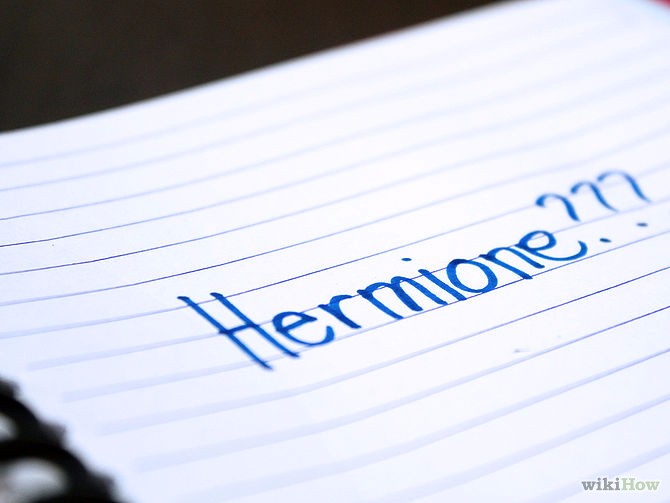 Hermione???
wikiHow